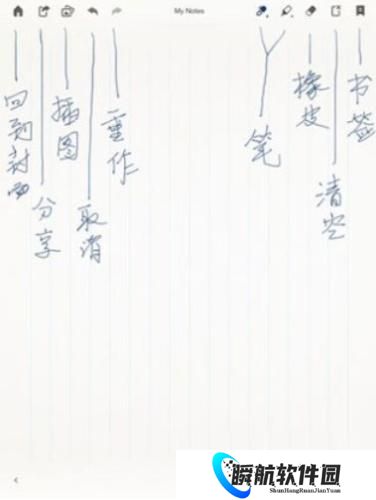 My Notes
回到封面
分享
插图
取消
重作
笔
橡皮
清空
书签
瞬航软件园
ShunHangRuanJianYuan